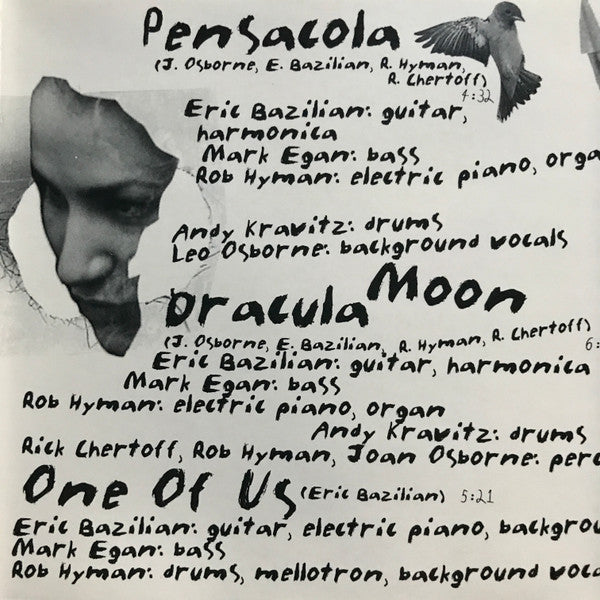 Pensacola
(J. Osborne, E. Bazilian, R. Hyman,
R. Chertoff)
4:32
Eric Bazilian: guitar,
harmonica
Mark Egan: bass
Rob Hyman: electric piano, orga
Andy Kravitz: drums
Leo Osborne: background vocals
Dracula Moon
(J. Osborne, E. Bazilian, R. Hyman, R. Chertoff)
6:
Eric Bazilian: guitar, harmonica
Mark Egan: bass
Rob Hyman: electric piano, organ
Andy Kravitz: drums
Rick Chertoff, Rob Hyman, Joan Osborne: perc
One Of Us (Eric Bazilian) 5:21
Eric Bazilian: guitar, electric piano, backgrou
Mark Egan: bass
Rob Hyman: drums, mellotron, background voca